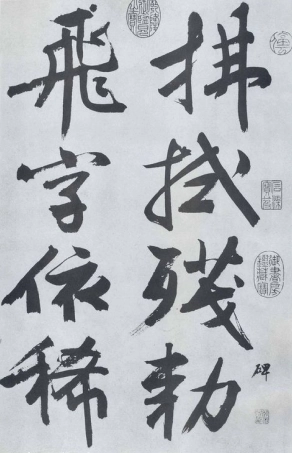 拂拭殘勅
碑
飛字依稀